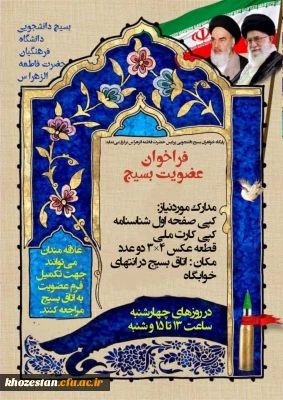 بسیج دانشجویی
دانشگاه
فرهنگیان
حضرت فاطمه
الزهرا س
پایگاه خواهران بسیج دانشجویی پردیس حضرت فاطمه الزهراس برگزار می نماید:
فراخوان
عضویت بسیج
مدارک موردنیاز:
کپی صفحه اول شناسنامه
کپی کارت ملی
قطعه عکس ۴×۳ دو عدد
مکان : اتاق بسیج در انتهای
خوابگاه
علاقه مندان
می توانند
جهت تکمیل
فرم عضویت
به اتاق بسیج
مراجعه کنند.
در روزهای چهارشنبه
ساعت ۱۳ تا ۱۵ و شنبه
khozestan.cfu.ac.ir